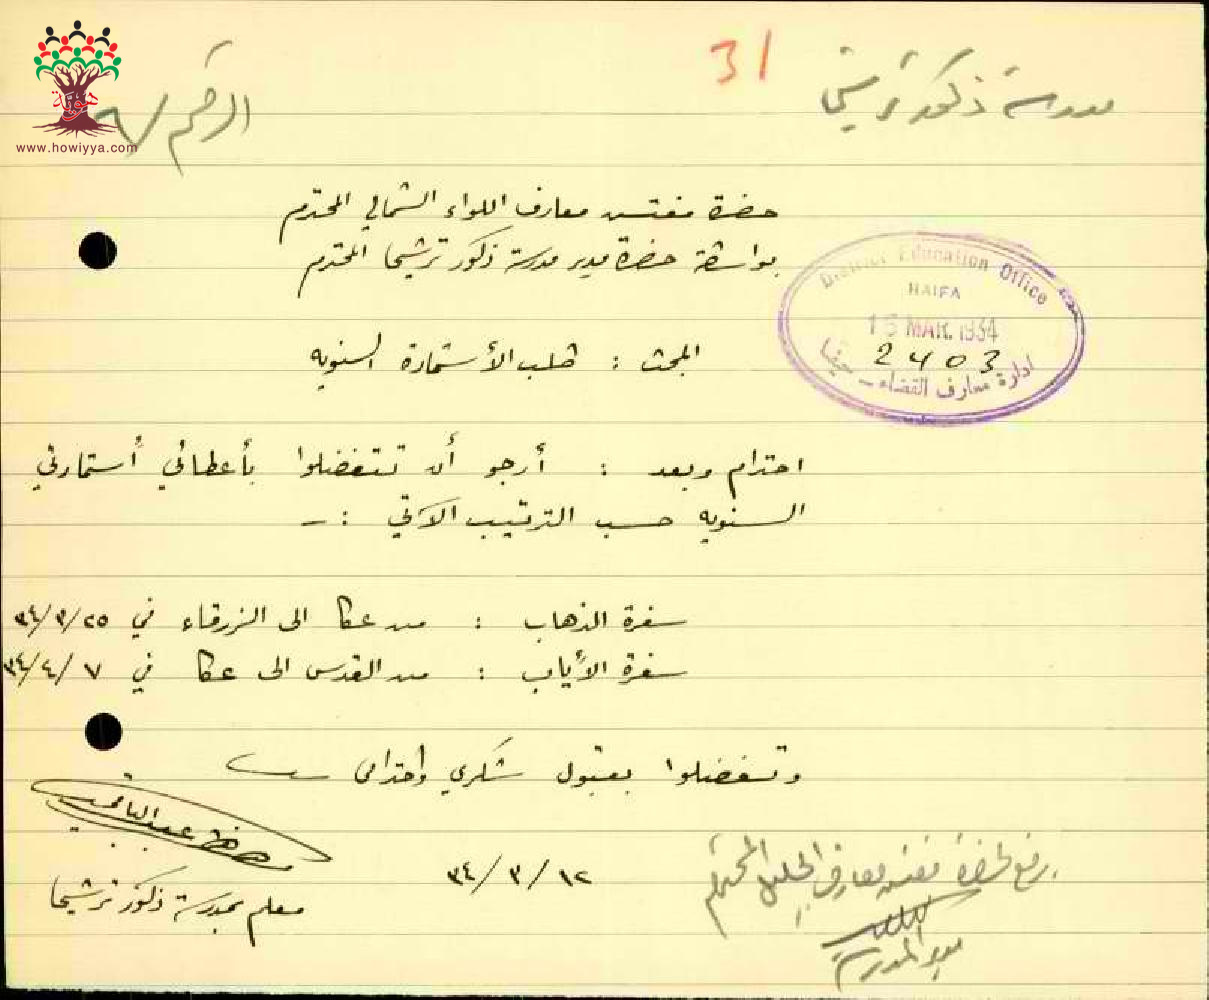 31
مدرسة ذكور ترشيحا
الرقم ٩/
هوية
www.howiyya.com
حضرة مفتش معارف اللواء الشمالي المحترم
بواسطة حضرة مدير مدرسة ذكور ترشيحا المحترم
District Education Office
HAIFA
15 MAR. 1934
2403
ادارة معارف القضاء - حيفا
المبحث : طلب الأستمارة السنويه
احترام وبعد : أرجو أن تتفضلوا بأعطائي أستمارتي
السنويه حسب الترتيب الآتي :-
سفرة الذهاب : من عكا الى الزرقاء في ٣٤/٣/٢٥
سفرة الأياب : من القدس الى عكا في ٣٤/٤/٧
وتفضلوا بقبول شكري واحترامي
عبد الباقي
معلم بمدرسة ذكور ترشيحا
٣٤/٣/١٢
يرفع لحضرة مفتش معارف الجليل المحترم
مدير المدرسة